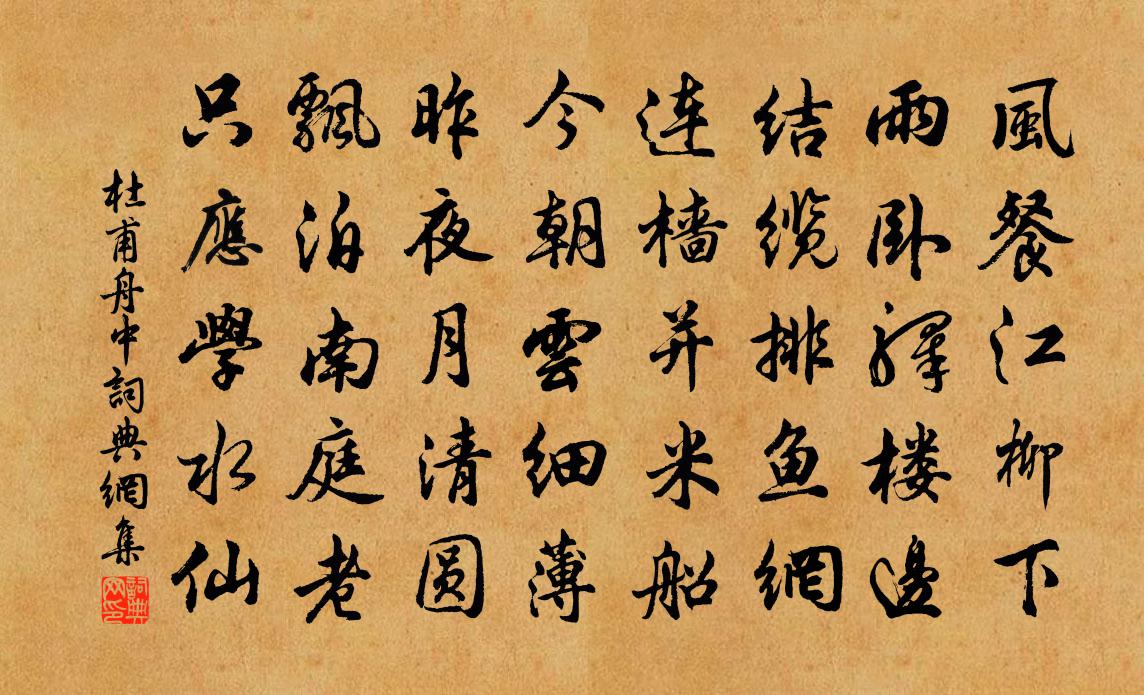 風餐江柳下
雨卧驛楼邊
结缆排鱼網
連檣并米船
今朝雲細薄
昨夜月清圆
飄泊南庭老
只應學水仙
杜甫舟中詞典網集
詞典网印